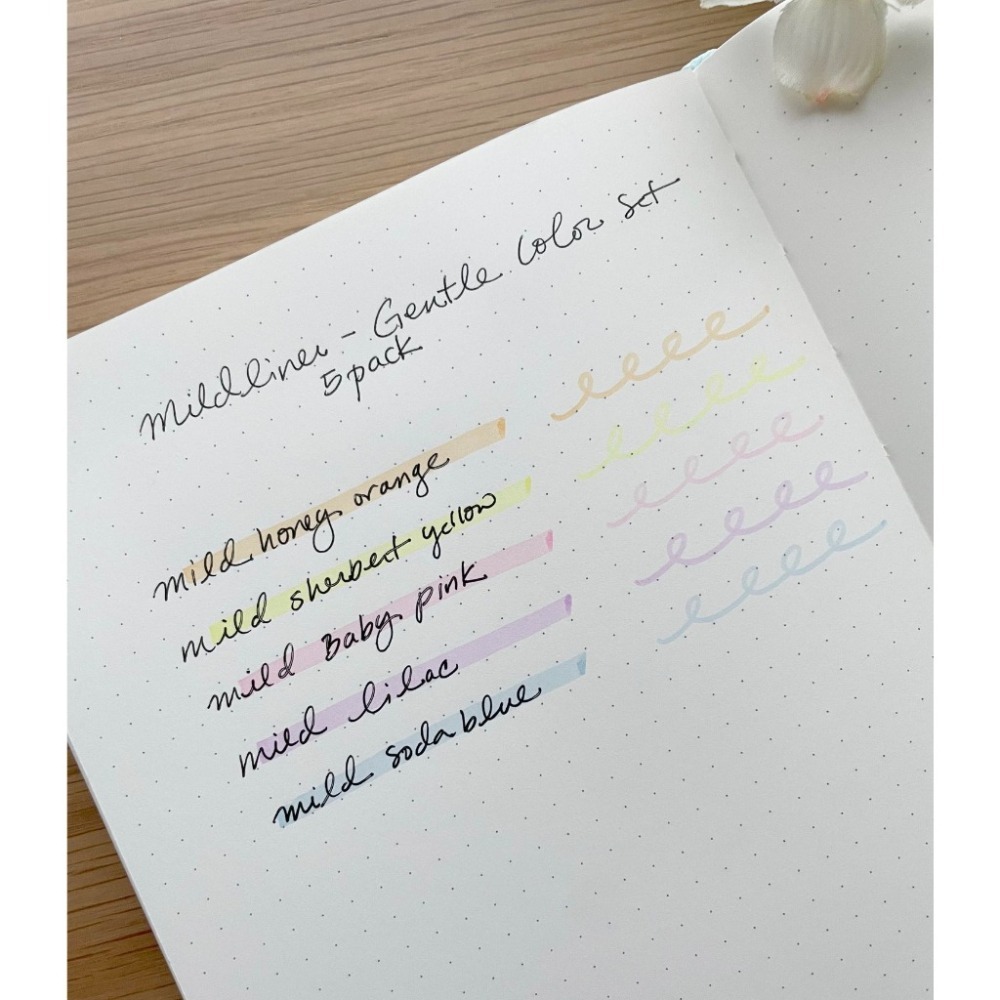 Mildliner - Gentle Color Set
5 pack
mild honey orange
mild sherbert yellow
mild Baby pink
mild lilac
mild soda blue